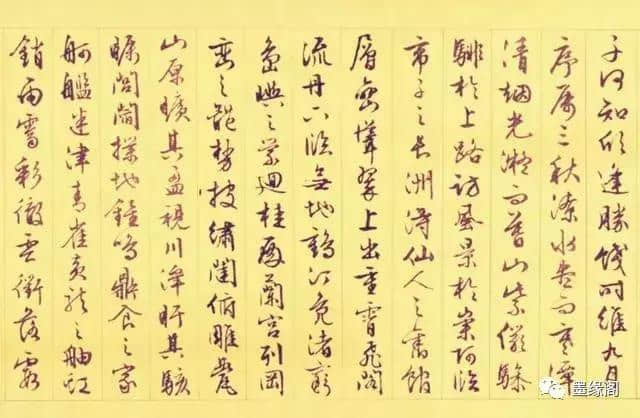 子何知躬逢勝餞时維九月
序属三秋潦水盡而寒潭
清烟光凝而暮山紫儼驂
騑於上路訪風景於崇阿臨
帝子之長洲得仙人之舊館
層巒聳翠上出重霄飛閣
流丹下臨無地鶴汀鳧渚窮
島嶼之縈迴桂殿蘭宮列岡
巒之體勢披繡闥俯雕甍
山原曠其盈視川澤盱其駭
矚閭閻撲地鐘鳴鼎食之家
舸艦迷津青雀黃龍之舳虹
銷雨霽彩徹雲衢落霞
墨缘阁